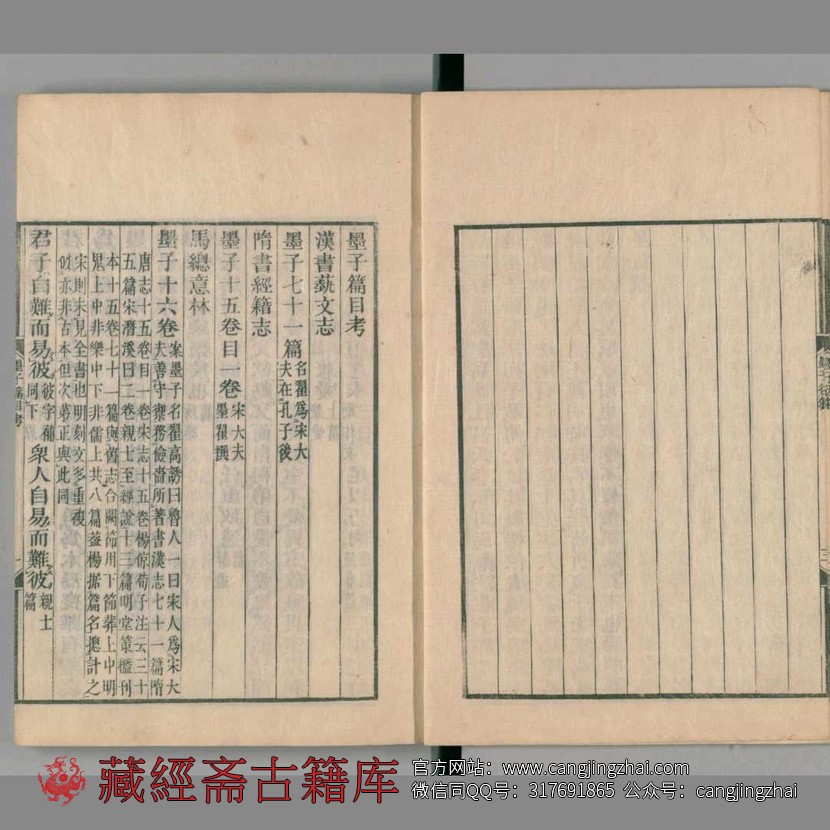 墨子篇目考
漢書蓺文志
墨子七十一篇名翟爲宋大夫在孔子後
隋書經籍志
墨子十五卷目一卷宋大夫墨翟撰
馬總意林
墨子十六卷案墨子名翟高誘曰魯人一曰宋人爲宋大夫善守禦務儉嗇所著書漢志七十一篇隋
唐志十五卷目一卷宋志十五卷楊倞荀子注云三十五篇宋潛溪曰二卷親士至經說十三篇明堂策檻刊
本十五卷七十一篇與舊志合闕節用下節葬上中明鬼上中非樂中下非儒上共八篇葢楊據篇名摠計之
宋則未見全書也明刻文多重複 亦非古本但次第正與此同
君子自難而易彼彼字補同下眾人自易而難彼親士篇
墨子篇目考
一
三
藏經斋古籍库
官方网站：www.cangjingzhai.com
微信同QQ号：317691865 公众号：cangjingzhai